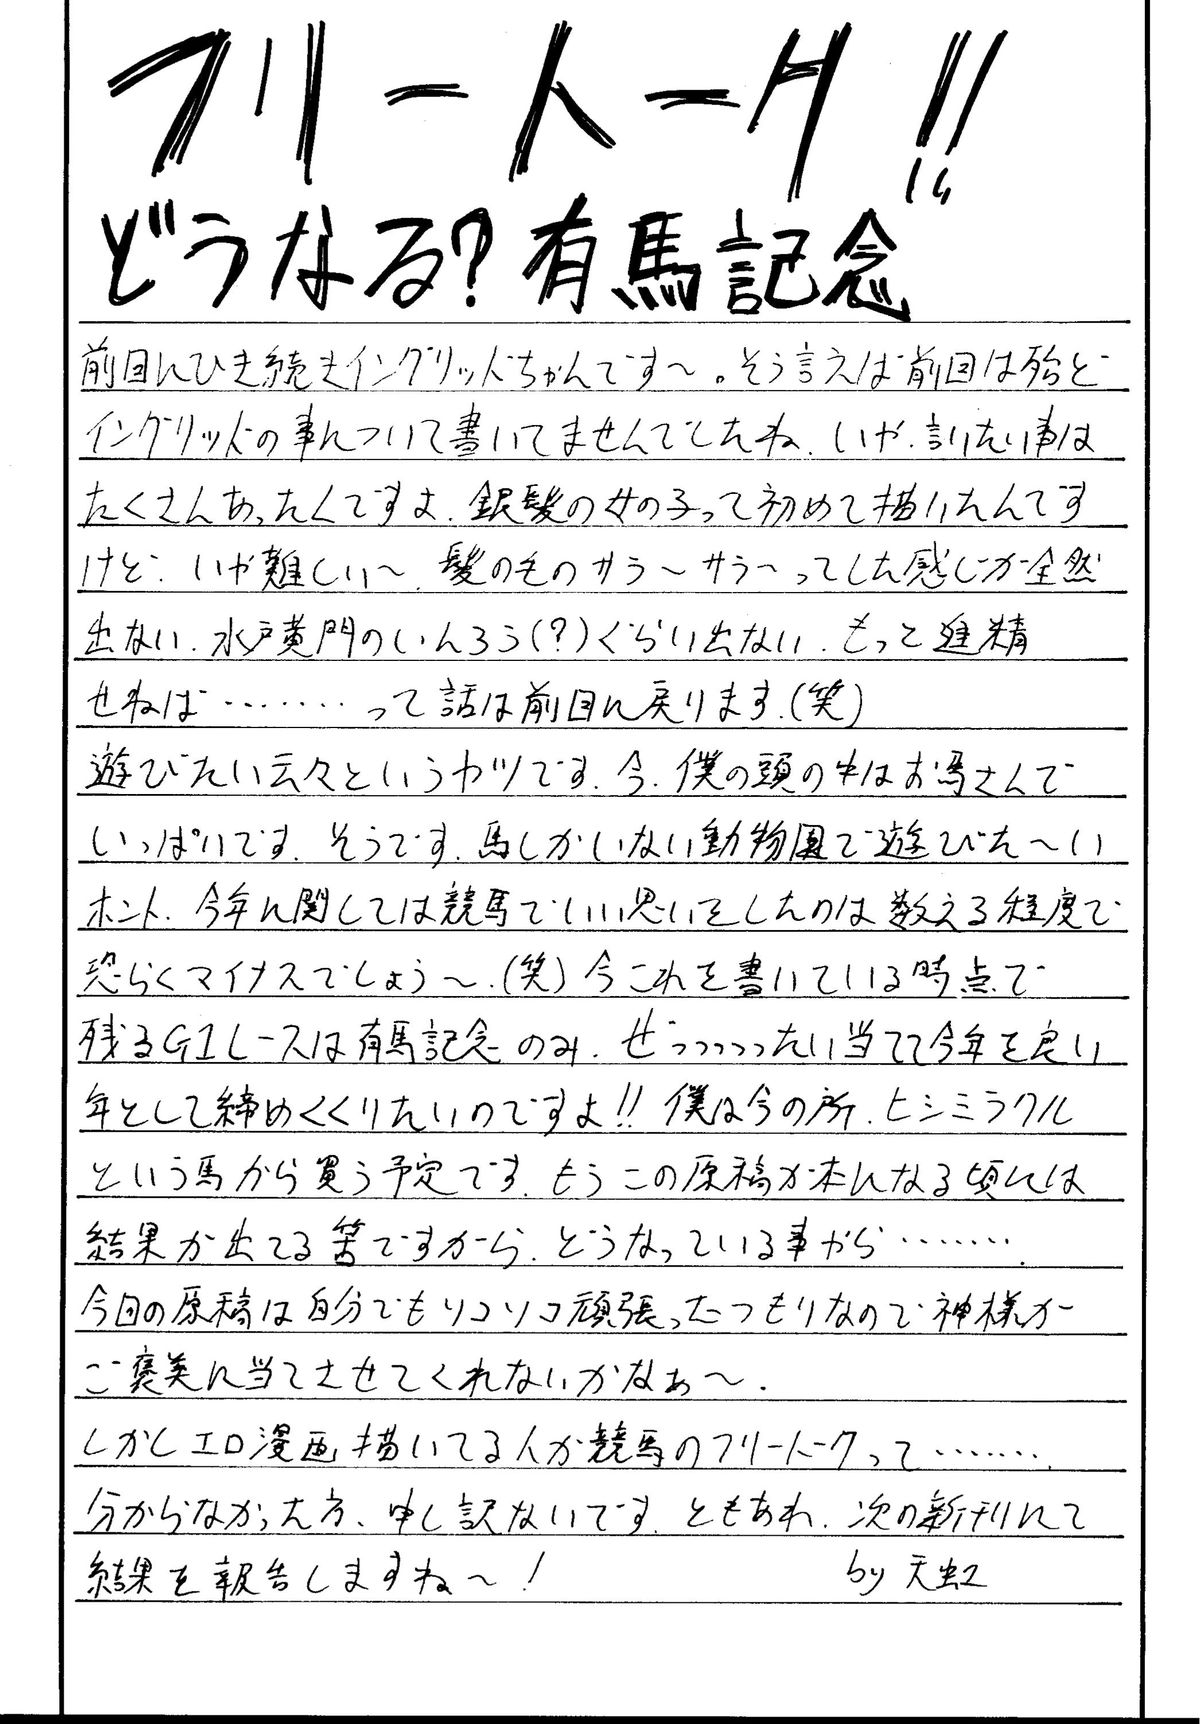 フリートーク!!
どうなる?有馬記念
前回にひき続きイングリッドちゃんです〜。そう言えば前回は殆ど
イングリッドの事について書いてませんでしたね、いや、語りたい事は
たくさんあったんですよ、銀髪の女の子って初めて描いたんです
けど、いや難しい〜、髪の毛のサラ〜サラ〜ってした感じが全然
出ない、水戸黄門のいんろう(?)ぐらい出ない、もっと進精
せねば………って話は前回に戻ります。(笑)
遊びたい云々というヤツです、今、僕の頭の中はお馬さんで
いっぱいです、そうです、馬しかいない動物園で遊びた〜い
ホント、今年に関しては競馬でいい思いをしたのは数える程度で
恐らくマイナスでしょう〜、(笑)今これを書いている時点で
残るG1レースは有馬記念のみ、ぜっっっっったい当てて今年を良い
年として締めくくりたいのですよ!!僕は今の所、ヒシミラクル
という馬から買う予定です、もうこの原稿が本になる頃には
結果が出てる筈ですから、どうなっている事やら………。
今回の原稿は自分でもリコソコ頑張ったつもりなので神様が
ご褒美に当てさせてくれないかなぁ〜。
しかしエロ漫画描いてる人が競馬のフリートークって………。
分からなかった方、申し訳ないです、ともあれ、次の新刊にて
結果を報告しますね〜!
by 天虹